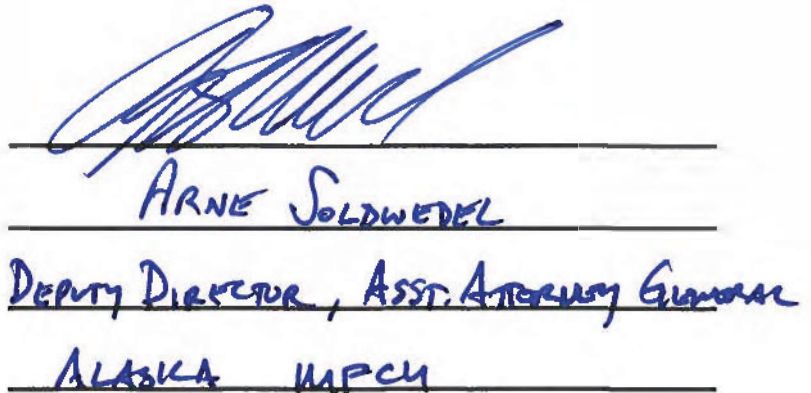 ARNE SOLDWEDEL
DEPUTY DIRECTOR, ASST. ATTORNEY GENERAL
ALASKA MFCU